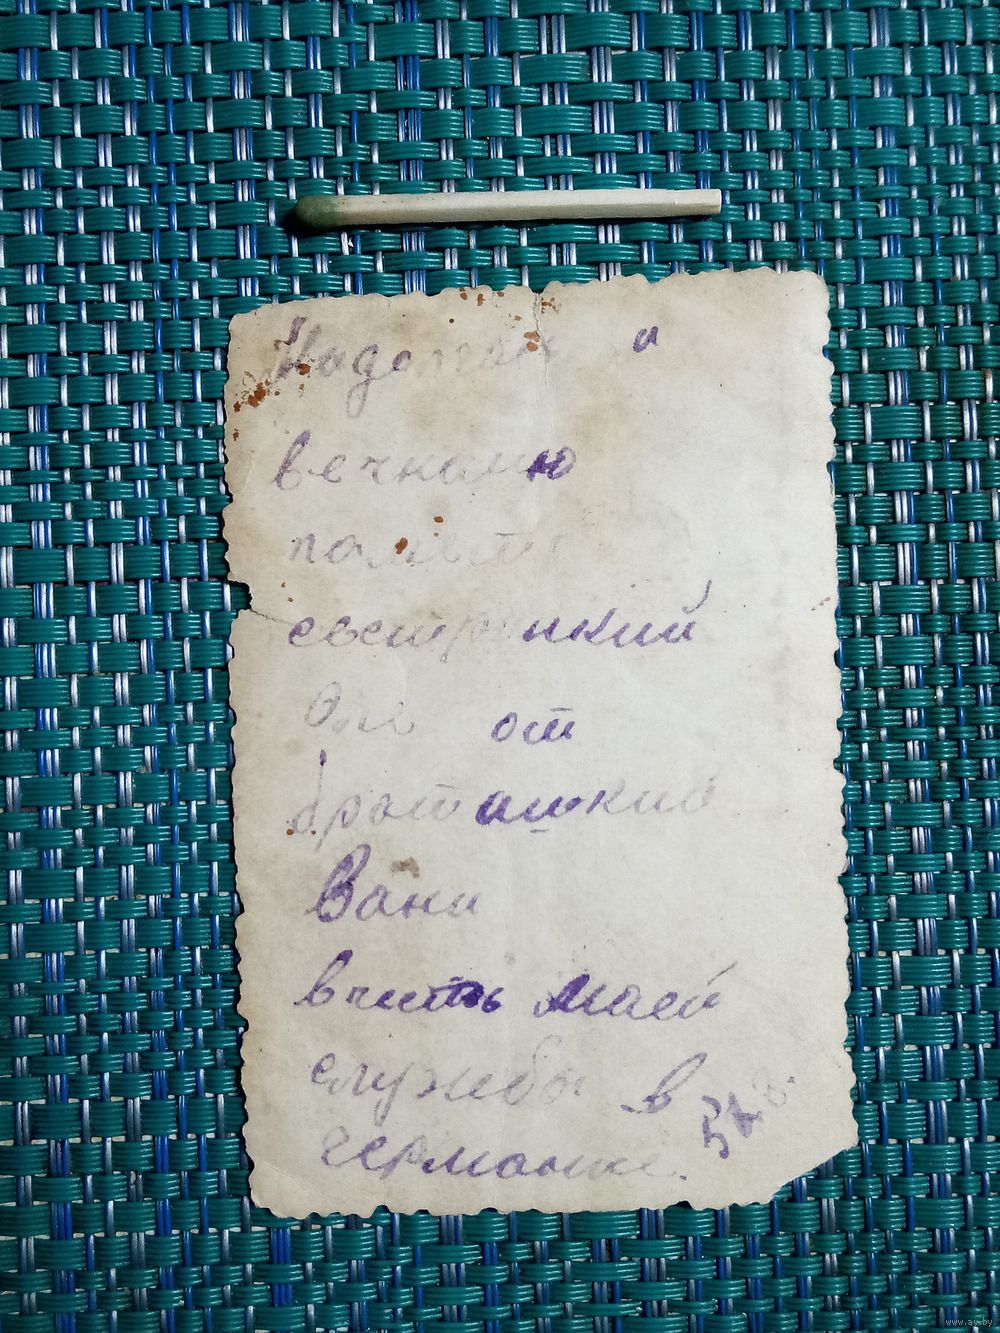 Надолгая и
вечнаюю
память
сестрицкий
Оле от
браташкив
Вани
в честь маей
службы в
германие.
www.ay.by